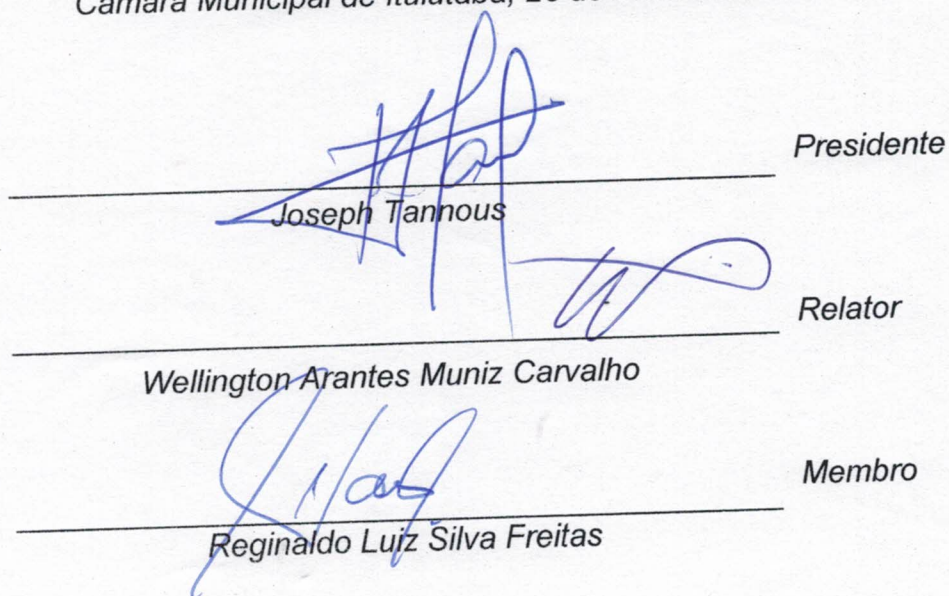 Câmara Municipal de Ituiutaba,
Presidente
Joseph Tannous
Relator
Wellington Arantes Muniz Carvalho
Membro
Reginaldo Luiz Silva Freitas